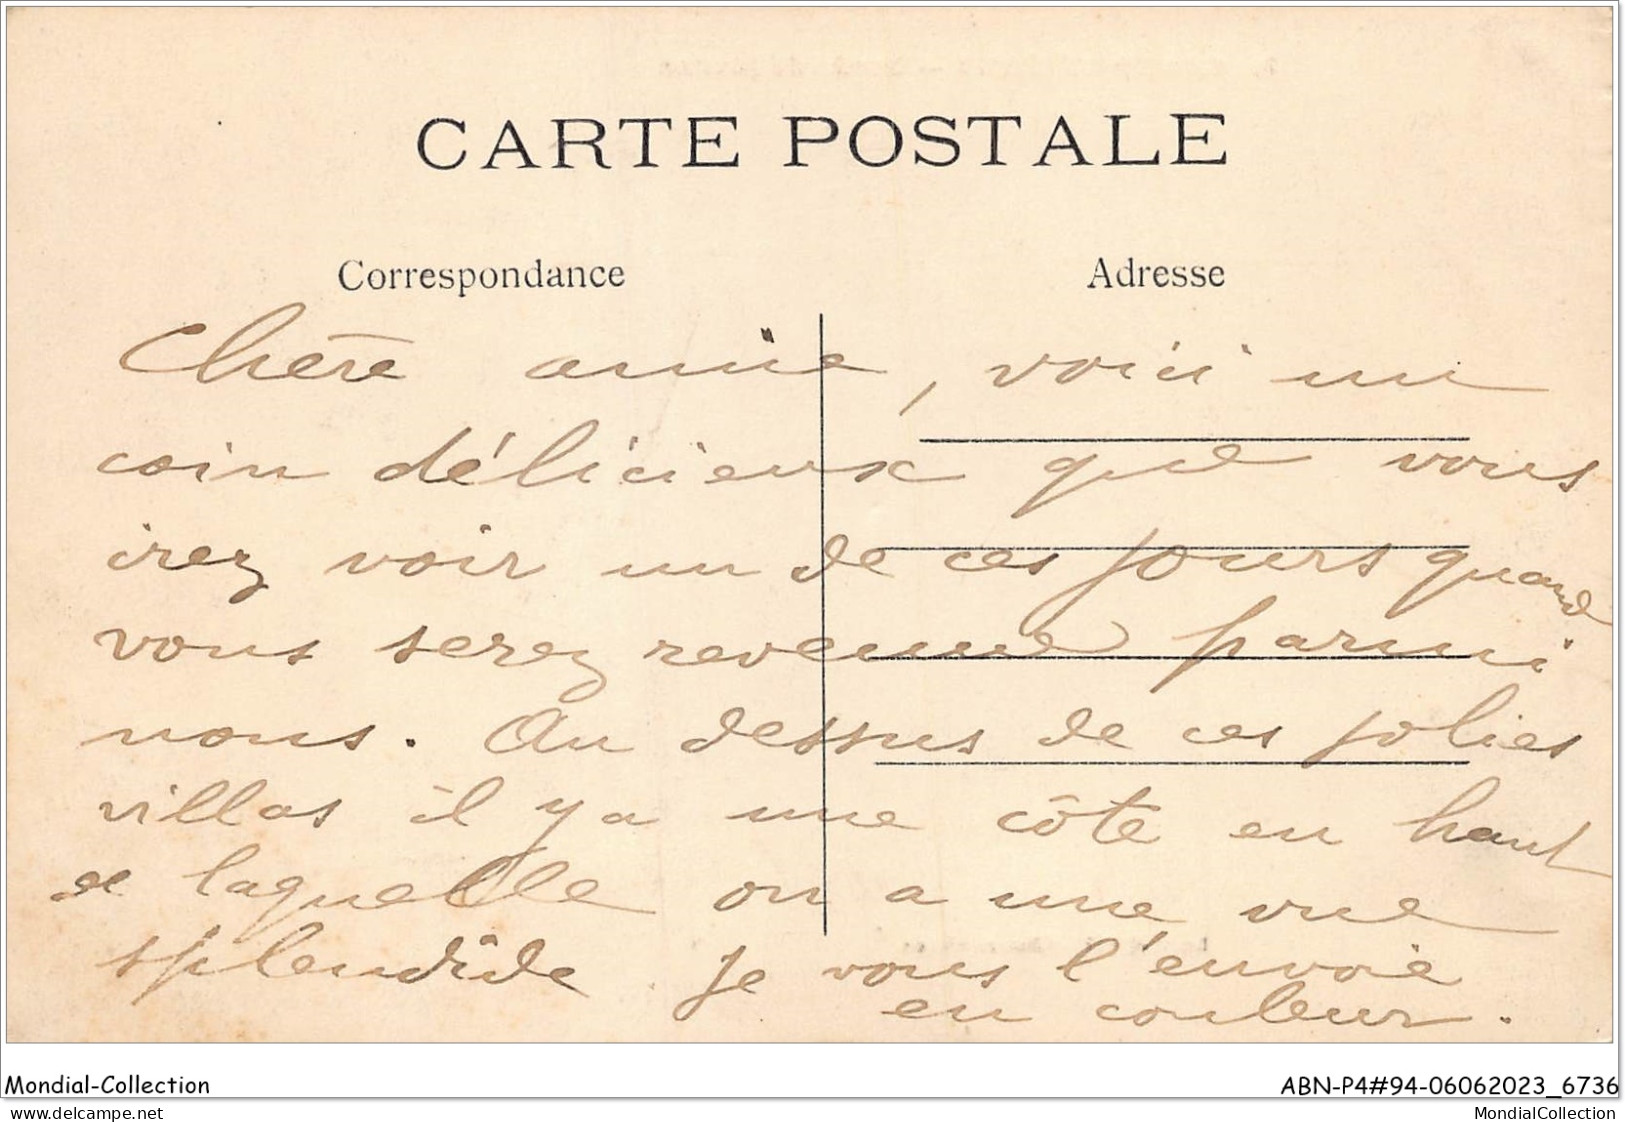 CARTE POSTALE
Correspondance
Adresse
Chère amie, voici un
coin délicieux que vous
irez voir un de ces jours quand
vous serez revenue parmi
nous. Au dessus de ces jolies
villas il y a une côte en haut
de laquelle on a une vue
splendide je vous l'envoie
en couleur.
Mondial-Collection
ABN-P4#94-06062023_6736
www.delcampe.net
MondialCollection